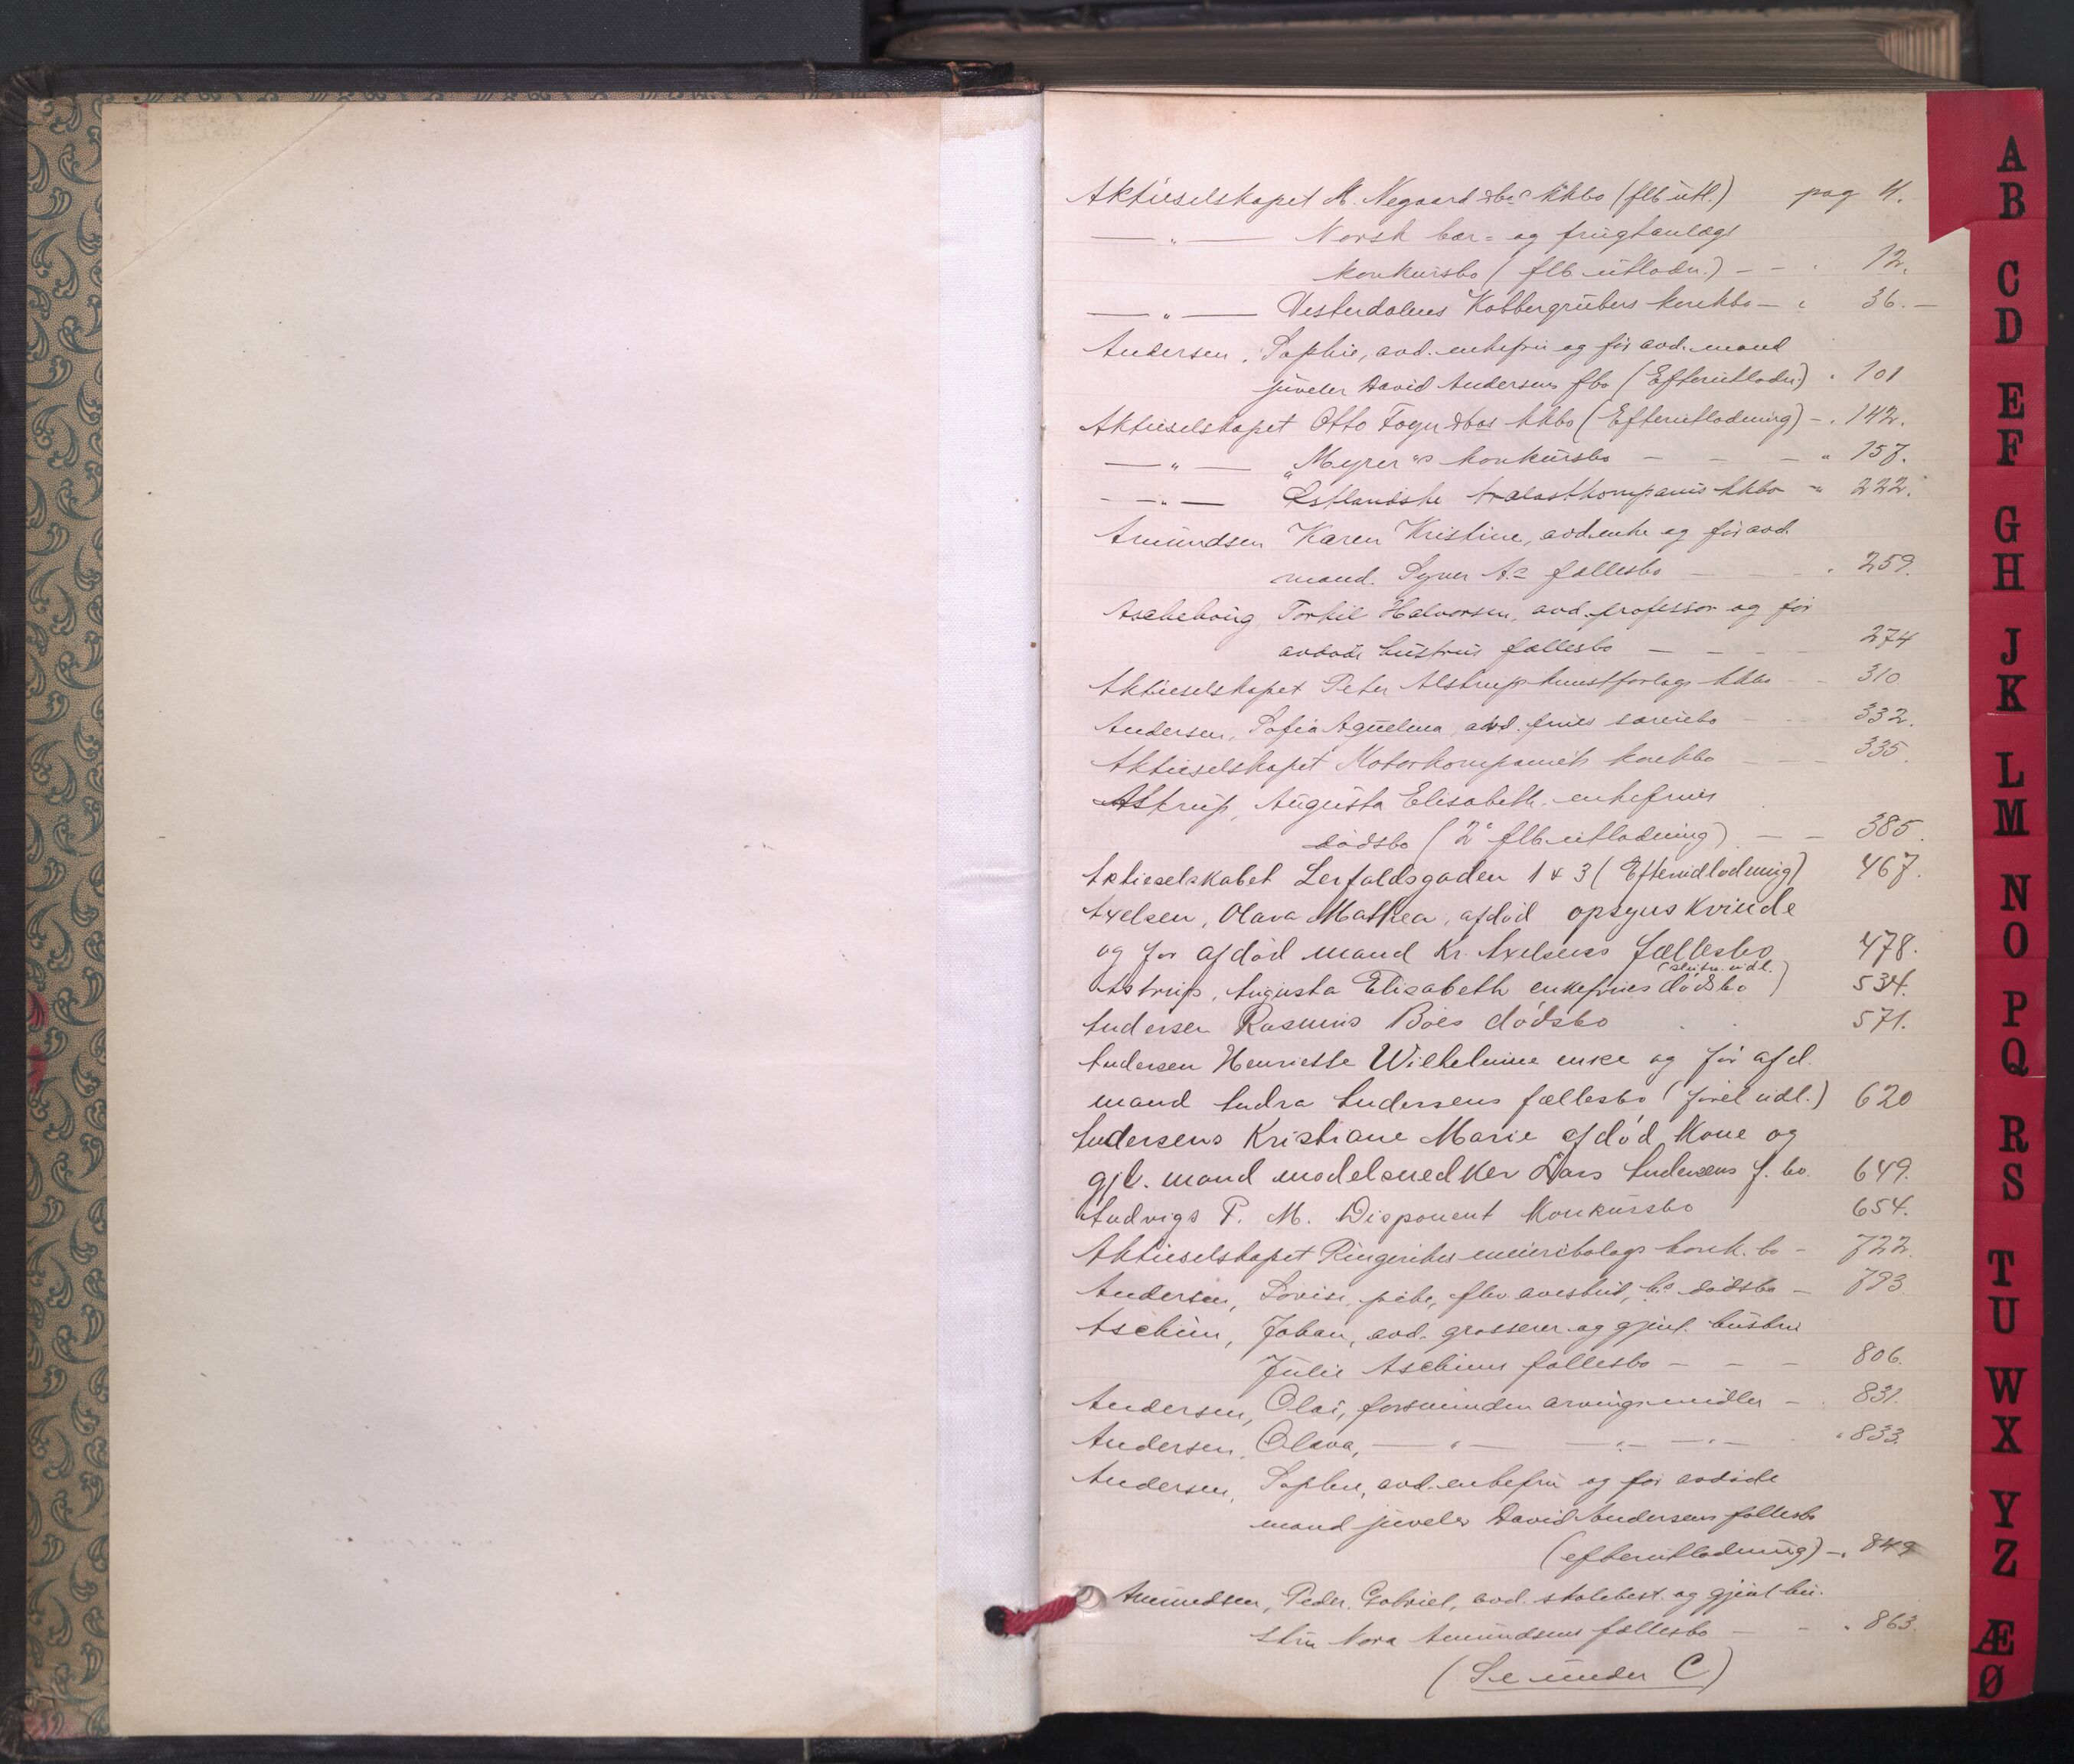 Aktieselskapet M. Negaard & Co.s kkbo (flb utl.) pag 11.
— " — Norsk bær- og frugtanlægs
konkursbo (flb utlodn.) - - . 12.
— " — Vesterdalens Kobbergrubers konkbo - " 36. -
Andersen, Sophie, avd. enkefru og før avd. mand
juveler David Andersens fbo (Efterutlodn.) " 101
Aktieselskapet Otto Foyn & Cos kkbo (Efterutlodning) - . 142.
— " — "Myrer"s konkursbo - - - " 157.
— " — Østlandske trælastkompanis kkbo - " 222.
Amundsen Karen Kristine, avd. enke og før avd.
mand. Syver A.s fællesbo - - . 259.
Aschehoug Torkil Halvorsen, avd. professor og før
avdøde hustrus fællesbo - - - - 274
Aktieselskapet Peter Alstrup kunstforlags kkbo - - 310
Andersen, Sofia Aquelina, avd. frues særiebo - - 332.
Aktieselskapet Motorkompaniets konkbo - - - 335.
Astrup, Augusta Elisabeth, enkefrues
dødsbo (2e flb utlodning) - - 385.
Aktieselskabet Lerfaldsgaden 1 & 3 (Efterudlodning) 467.
Axelsen, Olava Mathea, afdød opsynskvinde
og før afdød mand Kr. Axelsens fællesbo 478.
(slutn. udl.)
Astrup, Augusta Elisabeth enkefrues dødsbo 534.
Andersen Rasmus Boes dødsbo . . 571.
Andersen Henriette Wilhelmine enke og før afd.
mand Andra Andersens fællesbo (forel udl.) 620
Andersens Kristiane Marie afdød Kone og
gjl. mand modelsnedker Lars Andersens f. bo. 649.
Ludvigs P. M. Disponent Konkursbo 654.
Aktieselskapet Ringerikes meieribolags konk. bo - 722.
Andersen, Lovise, pike, dødsbo - 793.
Aschim, Johan, avd. grosserer og gjenl. hustru
Julie Aschims fællesbo - - - 806.
Andersen, Olai, forsvunden arvings midler - . 831.
Andersen, Olava, — " — — " — — " — " 833.
Andersen, Sophie, avd. enkefru og før avdøde
mand juveler David Andersens fællesbo
(efterutlodning) - . 849
Amundsen, Peder Gabriel, avd. skolebest. og gjenl hu-
stru Nora Amundsens fællesbo - - " 863.
(Se under C)
A
B
C
D
E
F
G
H
J
K
L
M
N
O
P
Q
R
S
T
U
W
X
Y
Z
Æ
Ø